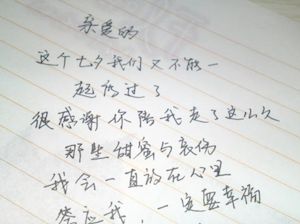 亲爱的
这个七夕我们又不能一
起度过了
很感谢你陪我走了这么久
那些甜蜜与哀伤
我会一直放在心里
答应我，一定要幸福